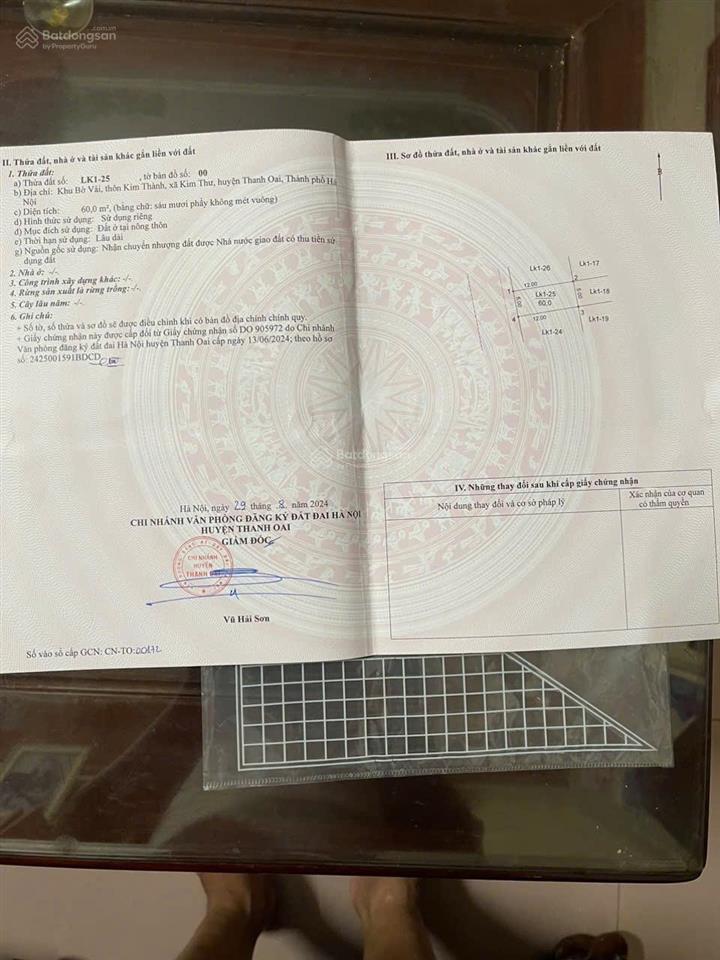 Batdongsan.com.vn
by PropertyGuru
II. Thửa đất, nhà ở và tài sản khác gắn liền với đất
1. Thửa đất:
a) Thửa đất số: LK1-25 , tờ bản đồ số: 00
b) Địa chỉ: Khu Bờ Vải, thôn Kim Thành, xã Kim Thư, huyện Thanh Oai, Thành phố Hà
Nội
c) Diện tích: 60,0 m², (bằng chữ: sáu mươi phẩy không mét vuông)
d) Hình thức sử dụng: Sử dụng riêng
đ) Mục đích sử dụng: Đất ở tại nông thôn
e) Thời hạn sử dụng: Lâu dài
g) Nguồn gốc sử dụng: Nhận chuyển nhượng đất được Nhà nước giao đất có thu tiền sử
dụng đất
2. Nhà ở: -/-.
3. Công trình xây dựng khác: -/-.
4. Rừng sản xuất là rừng trồng: -/-.
5. Cây lâu năm: -/-.
6. Ghi chú:
+ Số tờ, số thửa và sơ đồ sẽ được điều chỉnh khi có bản đồ địa chính chính quy.
+ Giấy chứng nhận này được cấp đổi từ Giấy chứng nhận số DO 905972 do Chi nhánh
Văn phòng đăng ký đất đai Hà Nội huyện Thanh Oai cấp ngày 13/06/2024; theo hồ sơ
số: 2425001591BDCD
Hà Nội, ngày 29 tháng 8 năm 2024
CHI NHÁNH VĂN PHÒNG ĐĂNG KÝ ĐẤT ĐAI HÀ NỘI
HUYỆN THANH OAI
GIÁM ĐỐC
CHI NHÁNH
HUYỆN
THANH OAI
Vũ Hải Sơn
Số vào sổ cấp GCN: CN-TO:00172
III. Sơ đồ thửa đất, nhà ở và tài sản khác gắn liền với đất
B
Lk1-26
Lk1-17
1
12.00
2
5.00
Lk1-25
60,0
5.00
Lk1-18
4
12.00
3
Lk1-19
Lk1-24
Batdongsan
IV. Những thay đổi sau khi cấp giấy chứng nhận
Nội dung thay đổi và cơ sở pháp lý
Xác nhận của cơ quan
có thẩm quyền